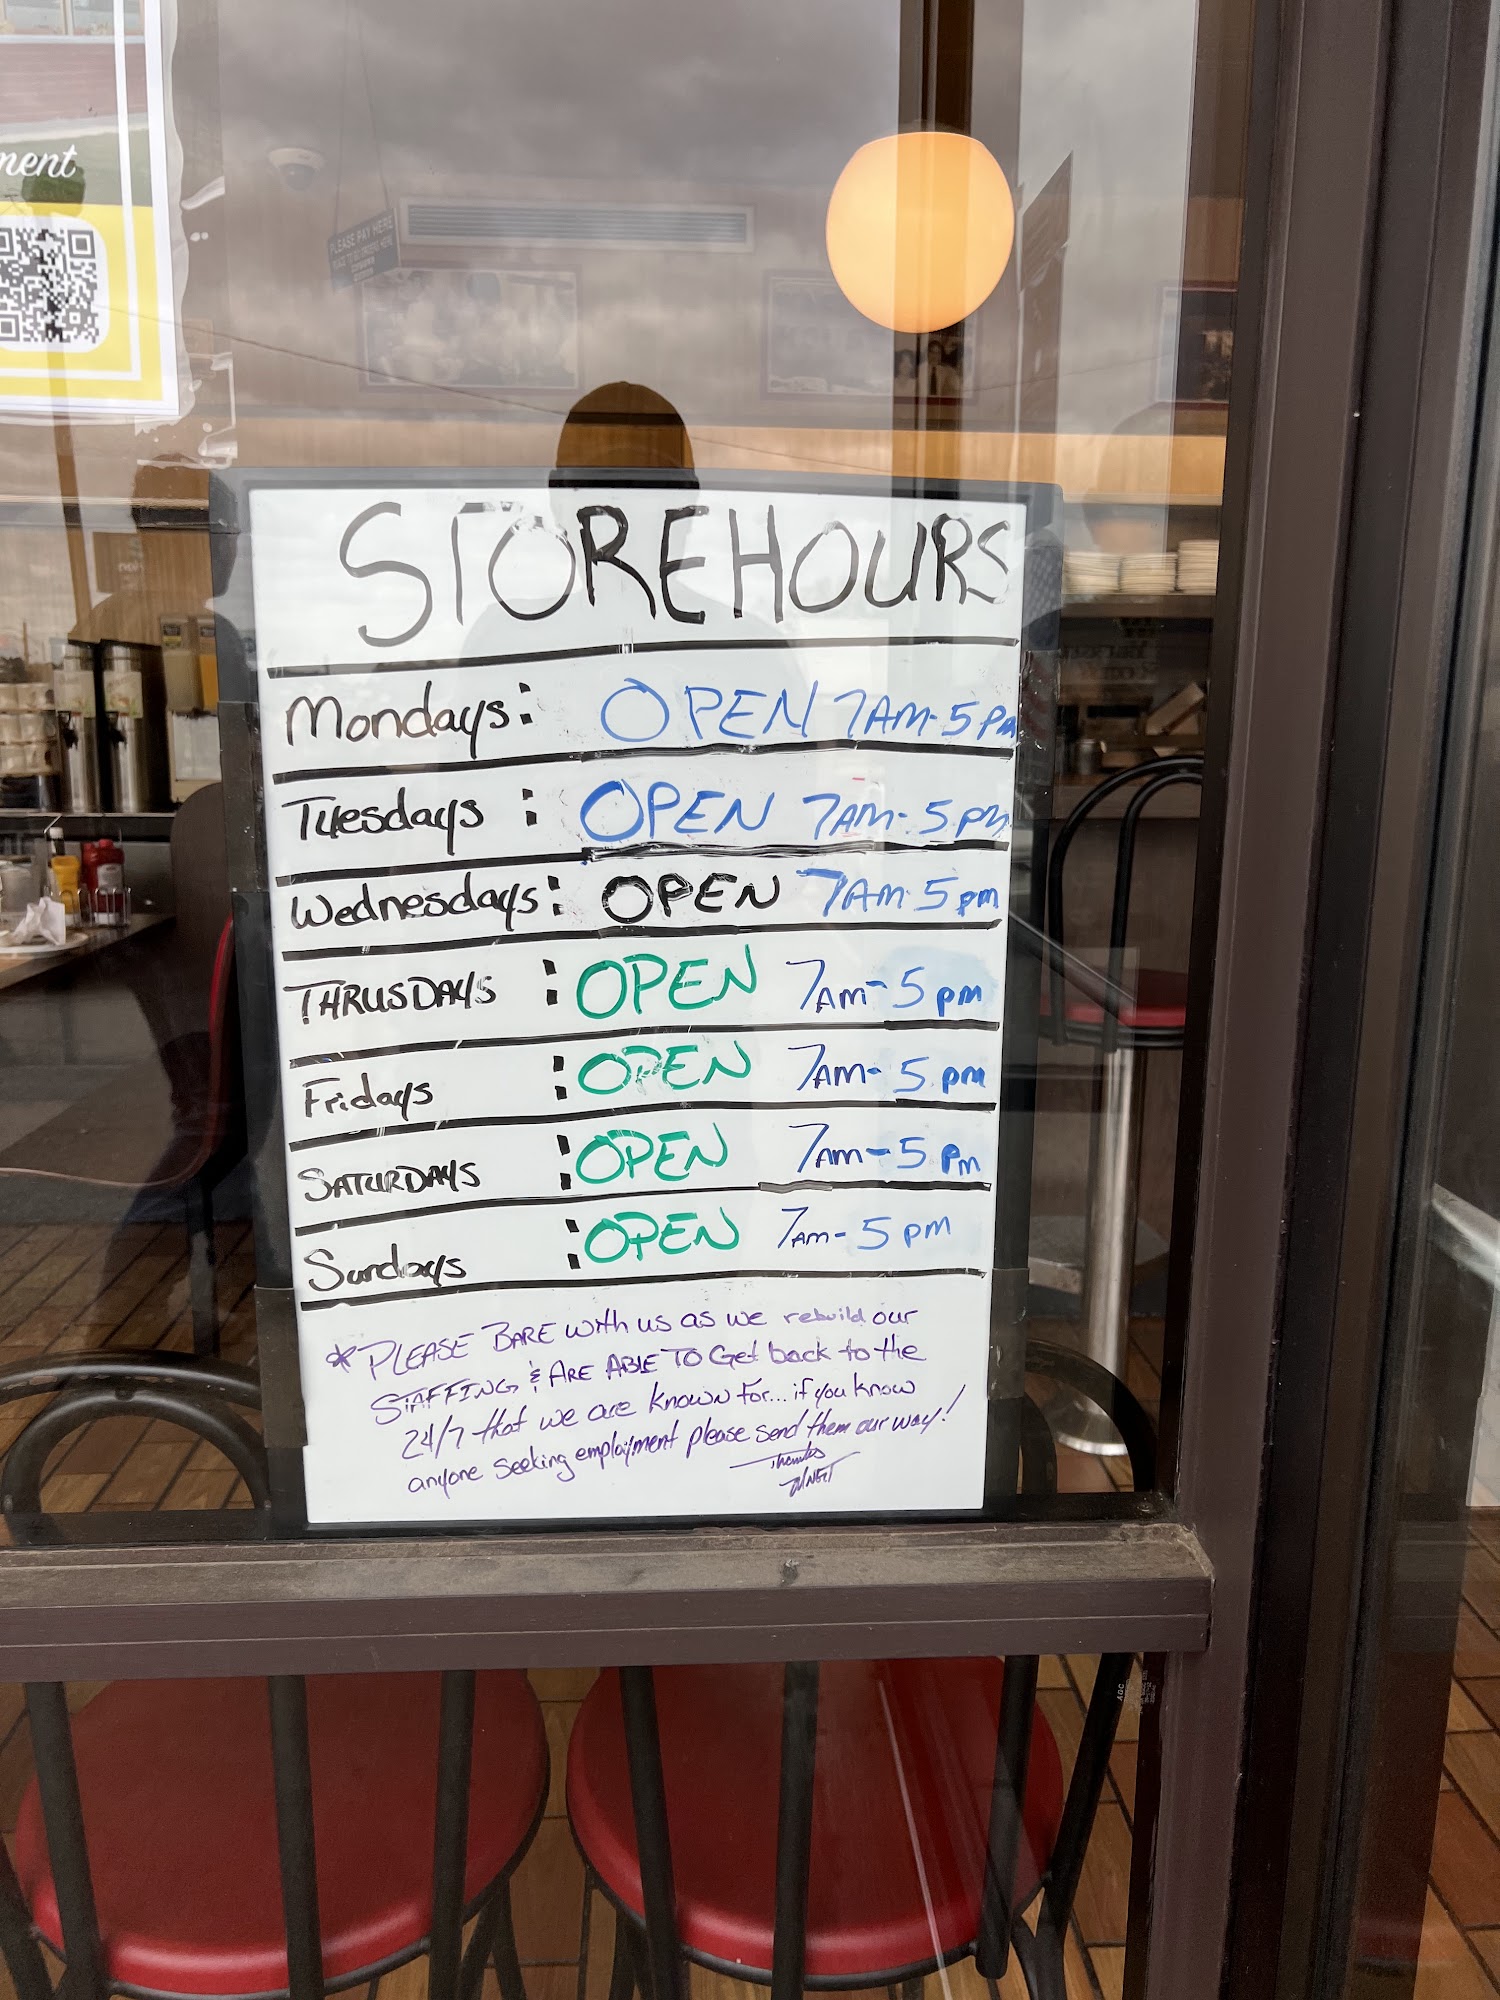 ment
PLEASE PAY HERE
STORE HOURS
Mondays: OPEN 7AM-5PM
Tuesdays: OPEN 7AM-5PM
Wednesdays: OPEN 7AM-5pm
THRUSDAYS: OPEN 7AM-5pm
Fridays: OPEN 7AM-5pm
SATURDAYS: OPEN 7AM-5PM
Sundays: OPEN 7AM-5PM
*PLEASE BARE with us as we rebuild our
STAFFING & ARE ABLE TO Get back to the
24/7 that we are known for... if you know
anyone seeking employment please send them our way!
Thanks